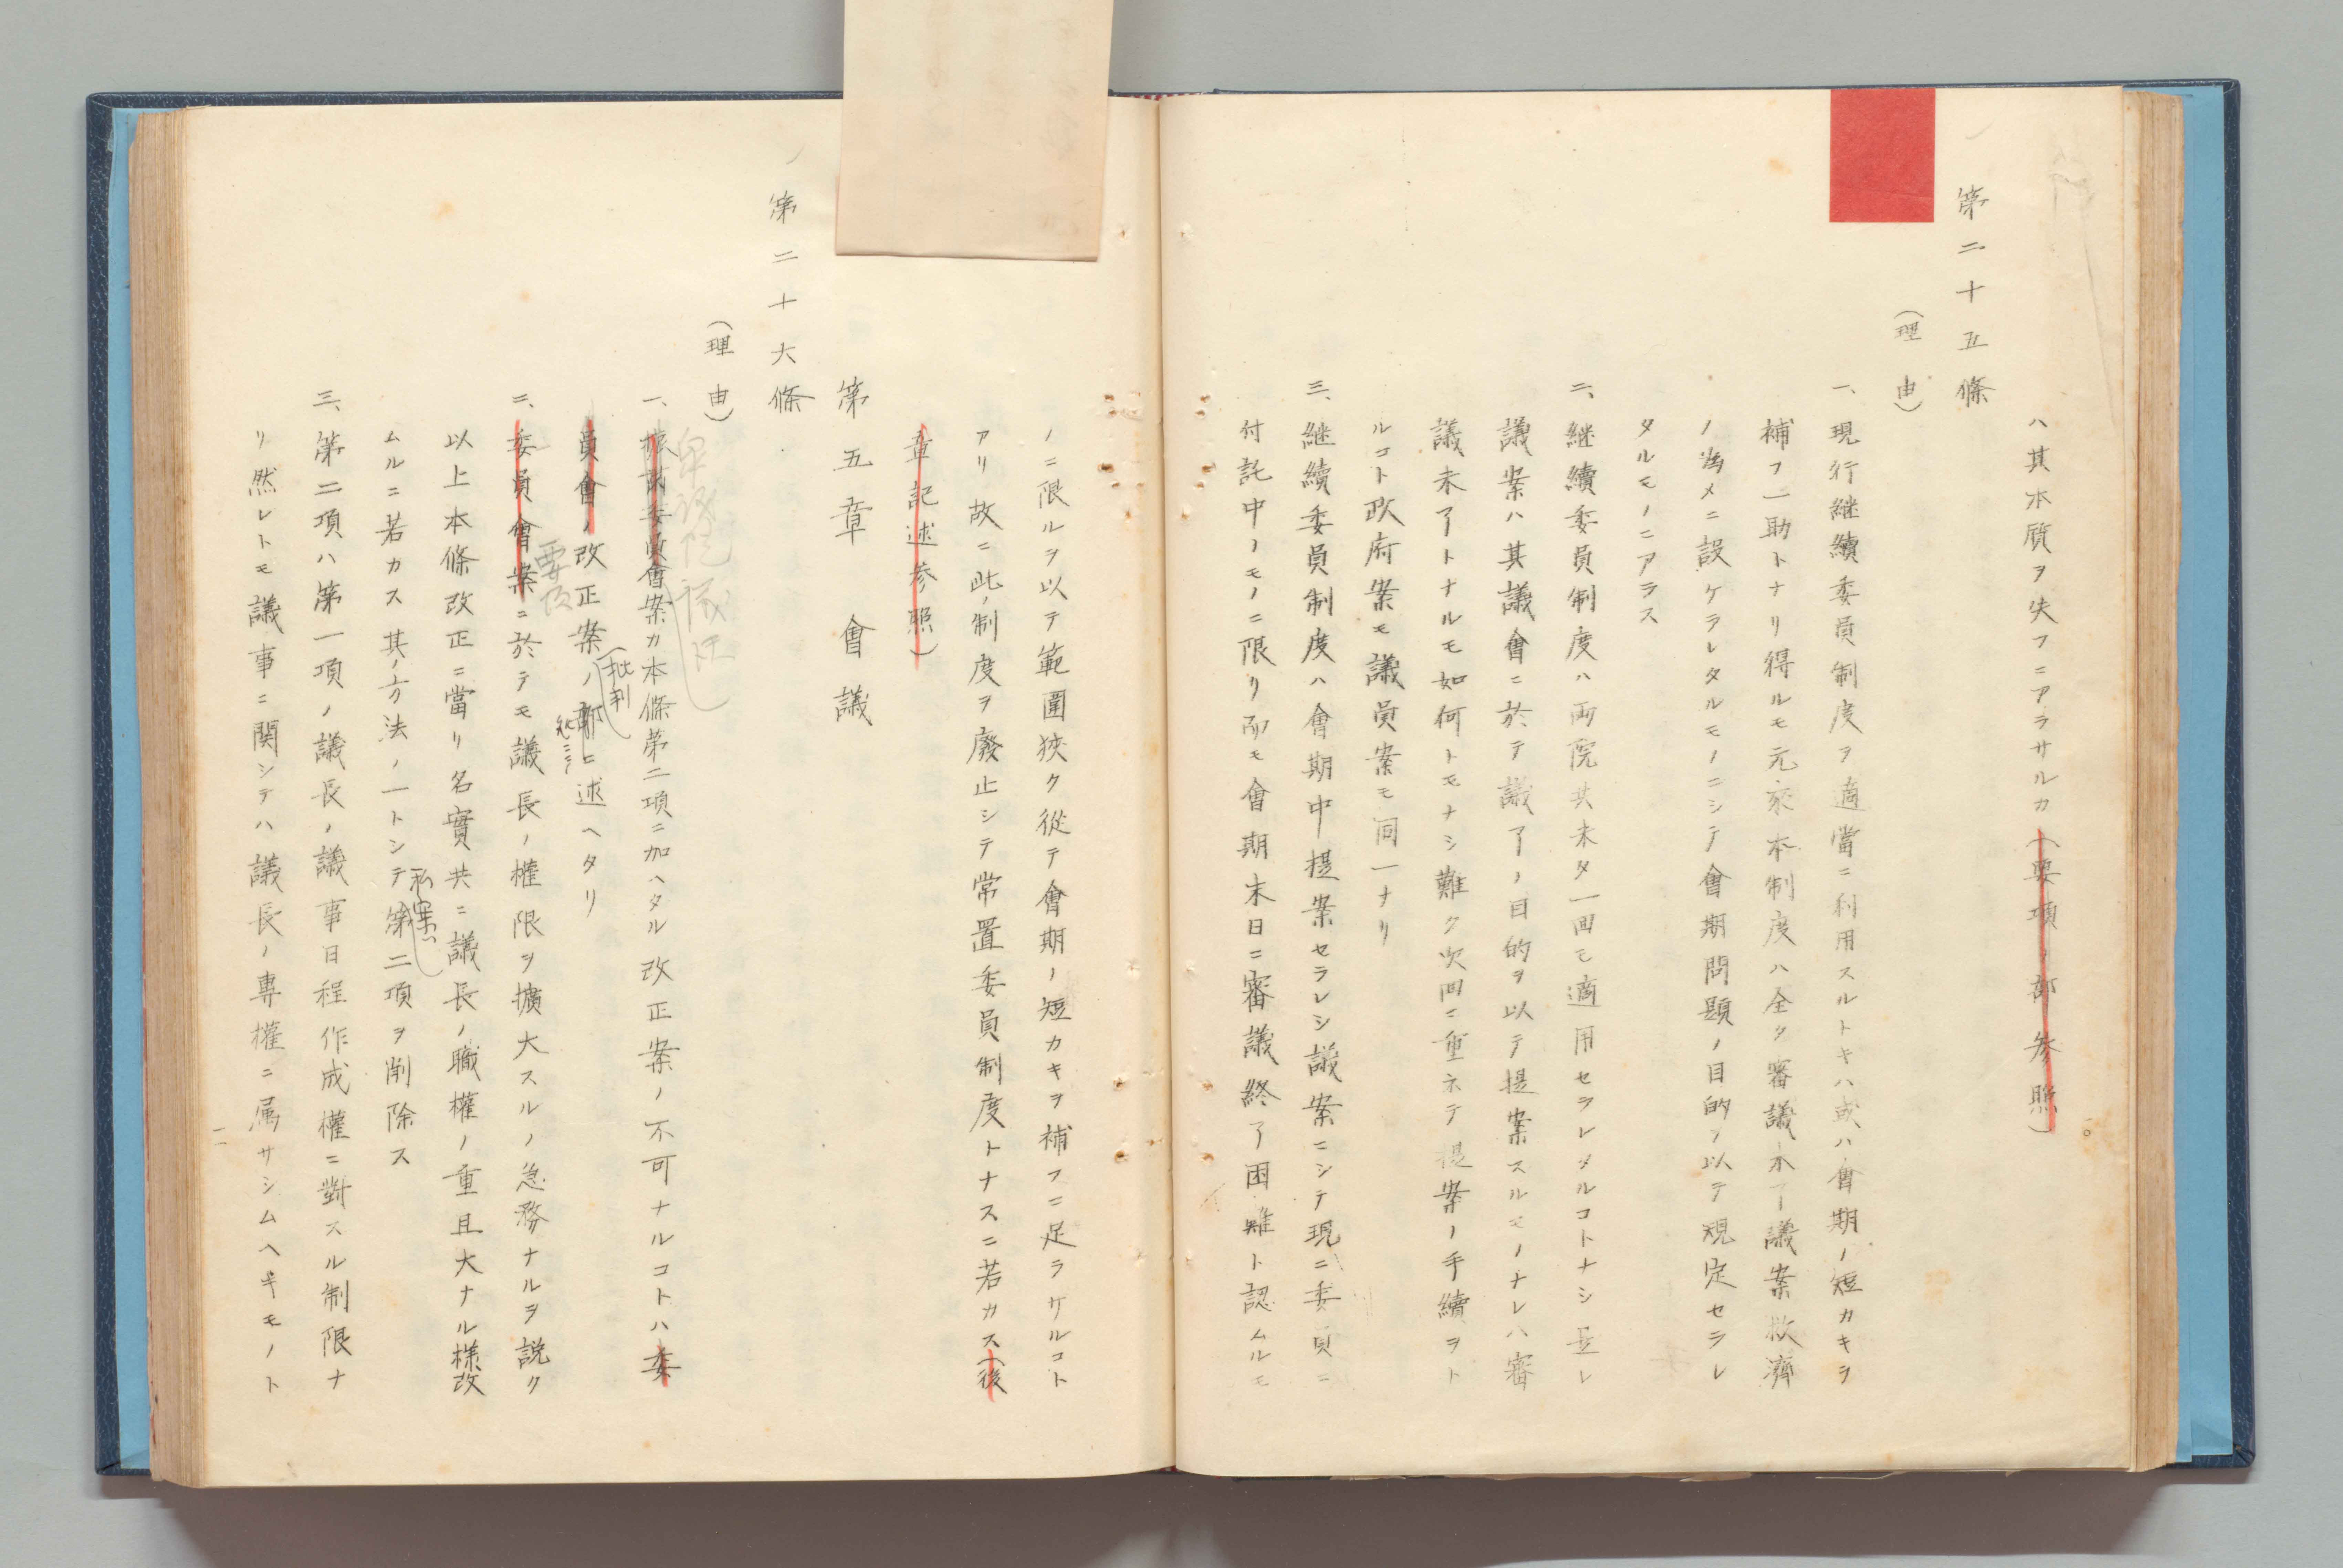 ハ其本質ヲ失フニアラサルカ(要項ノ部参照)
第二十五條
(理由)
一、現行継續委員制度ヲ適當ニ利用スルトキハ或ハ會期ノ短カキヲ
補フ一助トナリ得ルモ元來本制度ハ全ク審議未了議案救濟
ノ為メニ設ケラレタルモノニシテ會期問題ノ目的ヲ以テ規定セラレ
タルモノニアラス
二、継續委員制度ハ両院共未タ一回モ適用セラレタルコトナシ蓋シ
議案ハ其議會ニ於テ議了ノ目的ヲ以テ提案スルモノナレハ審
議未了トナルモ如何トモナシ難ク次回ニ重ネテ提案ノ手續ヲト
ルコト政府案モ議員案モ同一ナリ
三、継續委員制度ハ會期中提案セラレシ議案ニシテ現ニ委員ニ
付託中ノモノニ限リ而モ會期末日ニ審議終了困難ト認ムルモ
一〇
ノニ限ルヲ以テ範圍狹ク從テ會期ノ短カキヲ補フニ足ラケルコト
アリ故ニ此ノ制度ヲ廢止シテ常置委員制度トナスニ若カス(後
章記述参照)
第五章 會議
第二十六條
(理由)
一、振試委員會案カ本條第二項ニ加ヘタル改正案ノ不可ナルコトハ委
員會ノ改正案ノ部ニ述ヘタリ
批判
二、委員會案ニ於テモ議長ノ權限ヲ擴大スルノ急務ナルヲ説ク
以上本條改正ニ當リ名實共ニ議長ノ職權ノ重且大ナル樣改
ムルニ若カス其ノ方法ノ一トシテ第二項ヲ削除ス
私案ハ
三、第二項ハ第一項ノ議長ノ議事日程作成權ニ對スル制限ナ
リ然レトモ議事ニ関シテハ議長ノ専權ニ属サシムヘキモノト
一一